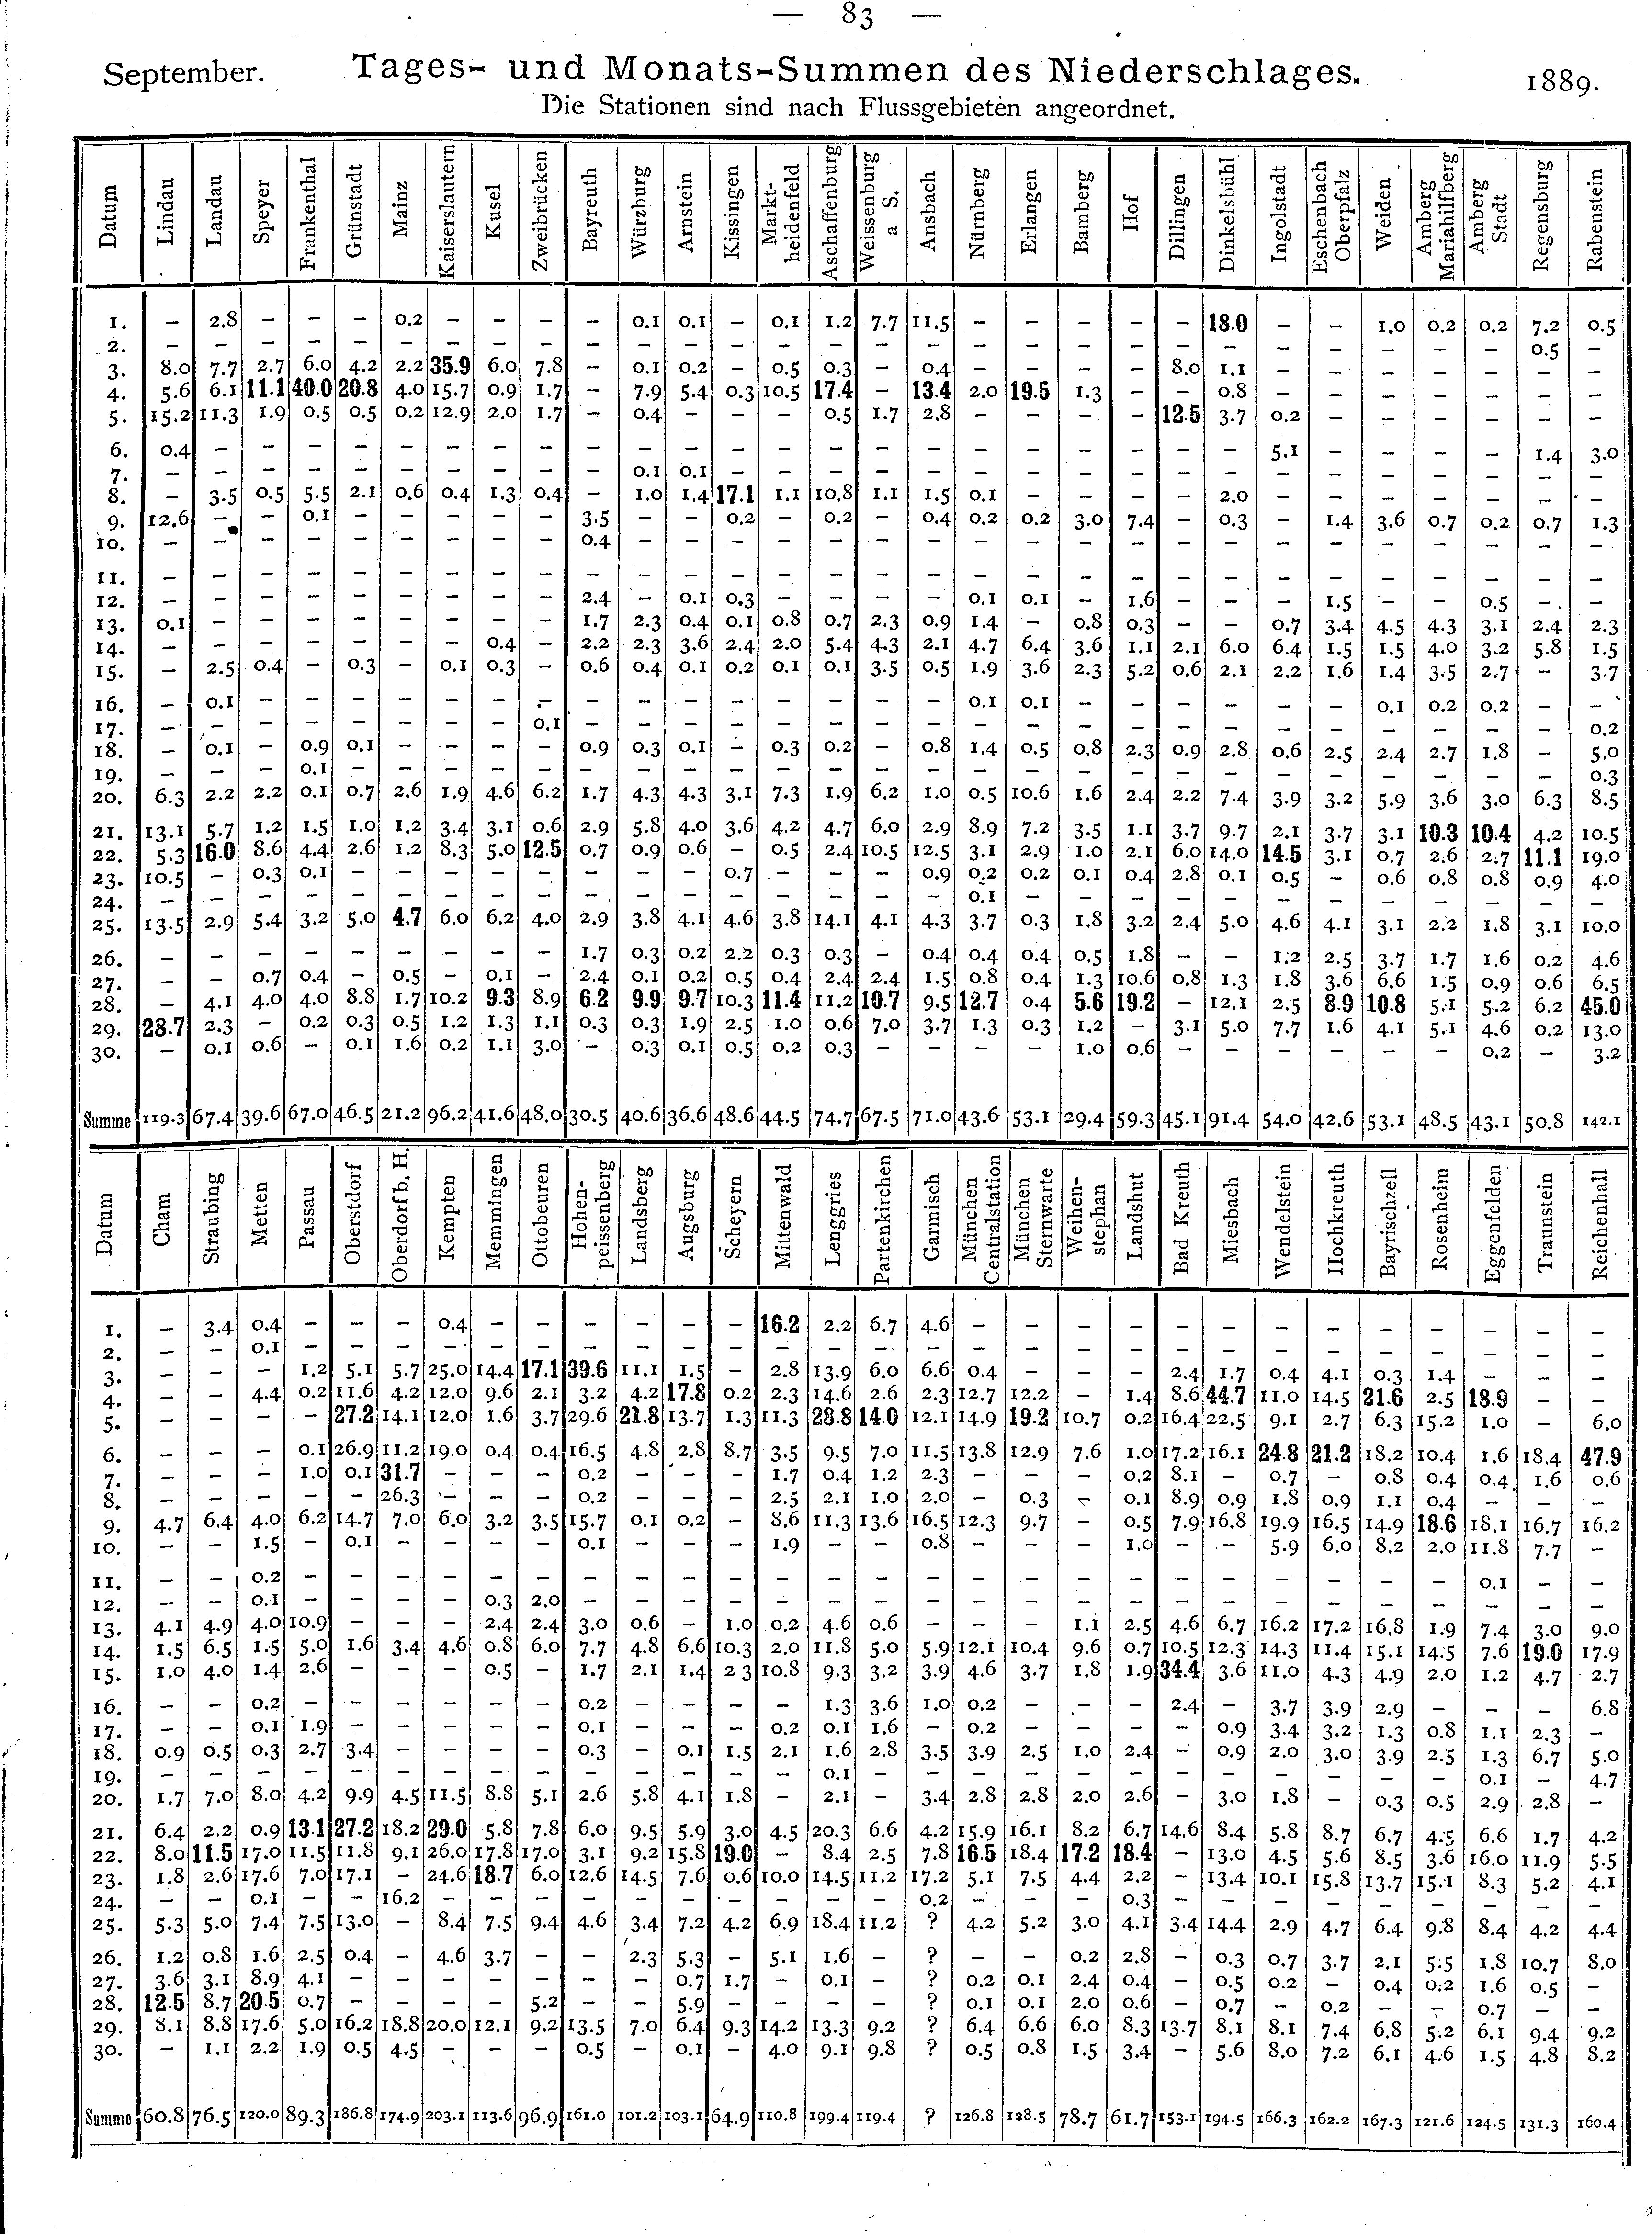 — 83 —
September. Tages- und Monats-Summen des Niederschlages. 1889.
Die Stationen sind nach Flussgebieten angeordnet.
Datum Lindau Landau Speyer Frankenthal Grünstadt Mainz Kaiserslautern Kusel Zweibrücken Bayreuth Würzburg Arnstein Kissingen Markt-heidenfeld Aschaffenburg Weissenburg a S. Ansbach Nürnberg Erlangen Bamberg Hof Dillingen Dinkelsbühl Ingolstadt Eschenbach Oberpfalz Weiden Amberg Mariahilfberg Amberg Stadt Regensburg Rabenstein
1. — 2.8 — — — 0.2 — — — — 0.1 0.1 — 0.1 1.2 7.7 11.5 — — — — — 18.0 — — 1.0 0.2 0.2 7.2 0.5
2. — — — — — — — — — — — — — — — — — — — — — — — — — — — — 0.5 —
3. 8.0 7.7 2.7 6.0 4.2 2.2 35.9 6.0 7.8 — 0.1 0.2 — 0.5 0.3 — 0.4 — — — — 8.0 1.1 — — — — — — —
4. 5.6 6.1 11.1 40.0 20.8 4.0 15.7 0.9 1.7 — 7.9 5.4 0.3 10.5 17.4 — 13.4 2.0 19.5 1.3 — — 0.8 — — — — — — —
5. 15.2 11.3 1.9 0.5 0.5 0.2 12.9 2.0 1.7 — 0.4 — — — 0.5 1.7 2.8 — — — — 12.5 3.7 0.2 — — — — — —
6. 0.4 — — — — — — — — — — — — — — — — — — — — — — 5.1 — — — — 1.4 3.0
7. — — — — — — — — — — 0.1 0.1 — — — — — — — — — — — — — — — — — —
8. — 3.5 0.5 5.5 2.1 0.6 0.4 1.3 0.4 — 1.0 1.4 17.1 1.1 10.8 1.1 1.5 0.1 — — — — 2.0 — — — — — — —
9. 12.6 — — 0.1 — — — — — 3.5 — — 0.2 — 0.2 — 0.4 0.2 0.2 3.0 7.4 — 0.3 — 1.4 3.6 0.7 0.2 0.7 1.3
10. — — — — — — — — — 0.4 — — — — — — — — — — — — — — — — — — — —
11. — — — — — — — — — — — — — — — — — — — — — — — — — — — — — —
12. — — — — — — — — — 2.4 — 0.1 0.3 — — — — 0.1 0.1 — 1.6 — — — 1.5 — — 0.5 — —
13. 0.1 — — — — — — — — 1.7 2.3 0.4 0.1 0.8 0.7 2.3 0.9 1.4 — 0.8 0.3 — — 0.7 3.4 4.5 4.3 3.1 2.4 2.3
14. — — — — — — — 0.4 — 2.2 2.3 3.6 2.4 2.0 5.4 4.3 2.1 4.7 6.4 3.6 1.1 2.1 6.0 6.4 1.5 1.5 4.0 3.2 5.8 1.5
15. — 2.5 0.4 — 0.3 — 0.1 0.3 — 0.6 0.4 0.1 0.2 0.1 0.1 3.5 0.5 1.9 3.6 2.3 5.2 0.6 2.1 2.2 1.6 1.4 3.5 2.7 — 3.7
16. — 0.1 — — — — — — — — — — — — — — — 0.1 0.1 — — — — — — 0.1 0.2 0.2 — —
17. — — — — — — — — 0.1 — — — — — — — — — — — — — — — — — — — — 0.2
18. — 0.1 — 0.9 0.1 — — — — 0.9 0.3 0.1 — 0.3 0.2 — 0.8 1.4 0.5 0.8 2.3 0.9 2.8 0.6 2.5 2.4 2.7 1.8 — 5.0
19. — — — 0.1 — — — — — — — — — — — — — — — — — — — — — — — — — 0.3
20. 6.3 2.2 2.2 0.1 0.7 2.6 1.9 4.6 6.2 1.7 4.3 4.3 3.1 7.3 1.9 6.2 1.0 0.5 10.6 1.6 2.4 2.2 7.4 3.9 3.2 5.9 3.6 3.0 6.3 8.5
21. 13.1 5.7 1.2 1.5 1.0 1.2 3.4 3.1 0.6 2.9 5.8 4.0 3.6 4.2 4.7 6.0 2.9 8.9 7.2 3.5 1.1 3.7 9.7 2.1 3.7 3.1 10.3 10.4 4.2 10.5
22. 5.3 16.0 8.6 4.4 2.6 1.2 8.3 5.0 12.5 0.7 0.9 0.6 — 0.5 2.4 10.5 12.5 3.1 2.9 1.0 2.1 6.0 14.0 14.5 3.1 0.7 2.6 2.7 11.1 19.0
23. 10.5 — 0.3 0.1 — — — — — — — — 0.7 — — — 0.9 0.2 0.2 0.1 0.4 2.8 0.1 0.5 — 0.6 0.8 0.8 0.9 4.0
24. — — — — — — — — — — — — — — — — — 0.1 — — — — — — — — — — — —
25. 13.5 2.9 5.4 3.2 5.0 4.7 6.0 6.2 4.0 2.9 3.8 4.1 4.6 3.8 14.1 4.1 4.3 3.7 0.3 1.8 3.2 2.4 5.0 4.6 4.1 3.1 2.2 1.8 3.1 10.0
26. — — — — — — — — — 1.7 0.3 0.2 2.2 0.3 0.3 — 0.4 0.4 0.4 0.5 1.8 — — 1.2 2.5 3.7 1.7 1.6 0.2 4.6
27. — — 0.7 0.4 — 0.5 — 0.1 — 2.4 0.1 0.2 0.5 0.4 2.4 2.4 1.5 0.8 0.4 1.3 10.6 0.8 1.3 1.8 3.6 6.6 1.5 0.9 0.6 6.5
28. — 4.1 4.0 4.0 8.8 1.7 10.2 9.3 8.9 6.2 9.9 9.7 10.3 11.4 11.2 10.7 9.5 12.7 0.4 5.6 19.2 — 12.1 2.5 8.9 10.8 5.1 5.2 6.2 45.0
29. 28.7 2.3 — 0.2 0.3 0.5 1.2 1.3 1.1 0.3 0.3 1.9 2.5 1.0 0.6 7.0 3.7 1.3 0.3 1.2 — 3.1 5.0 7.7 1.6 4.1 5.1 4.6 0.2 13.0
30. — 0.1 0.6 — 0.1 1.6 0.2 1.1 3.0 — 0.3 0.1 0.5 0.2 0.3 — — — — 1.0 0.6 — — — — — — 0.2 — 3.2
Summe 119.3 67.4 39.6 67.0 46.5 21.2 96.2 41.6 48.0 30.5 40.6 36.6 48.6 44.5 74.7 67.5 71.0 43.6 53.1 29.4 59.3 45.1 91.4 54.0 42.6 53.1 48.5 43.1 50.8 142.1
Datum Cham Straubing Metten Passau Oberstdorf Oberdorf b. H. Kempten Memmingen Ottobeuren Hohen-peissenberg Landsberg Augsburg Scheyern Mittenwald Lenggries Partenkirchen Garmisch München Centralstation München Sternwarte Weihen-stephan Landshut Bad Kreuth Miesbach Wendelstein Hochkreuth Bayrischzell Rosenheim Eggenfelden Traunstein Reichenhall
1. — 3.4 0.4 — — — 0.4 — — — — — — 16.2 2.2 6.7 4.6 — — — — — — — — — — — — —
2. — — 0.1 — — — — — — — — — — — — — — — — — — — — — — — — — — —
3. — — — 1.2 5.1 5.7 25.0 14.4 17.1 39.6 11.1 1.5 — 2.8 13.9 6.0 6.6 0.4 — — — 2.4 1.7 0.4 4.1 0.3 1.4 — — —
4. — — 4.4 0.2 11.6 4.2 12.0 9.6 2.1 3.2 4.2 17.8 0.2 2.3 14.6 2.6 2.3 12.7 12.2 — 1.4 8.6 44.7 11.0 14.5 21.6 2.5 18.9 — —
5. — — — — 27.2 14.1 12.0 1.6 3.7 29.6 21.8 13.7 1.3 11.3 28.8 14.0 12.1 14.9 19.2 10.7 0.2 16.4 22.5 9.1 2.7 6.3 15.2 1.0 — 6.0
6. — — — 0.1 26.9 11.2 19.0 0.4 0.4 16.5 4.8 2.8 8.7 3.5 9.5 7.0 11.5 13.8 12.9 7.6 1.0 17.2 16.1 24.8 21.2 18.2 10.4 1.6 18.4 47.9
7. — — — 1.0 0.1 31.7 — — — 0.2 — — — 1.7 0.4 1.2 2.3 — — — 0.2 8.1 — 0.7 — 0.8 0.4 0.4 1.6 0.6
8. — — — — — 26.3 — — — 0.2 — — — 2.5 2.1 1.0 2.0 — 0.3 — 0.1 8.9 0.9 1.8 0.9 1.1 0.4 — — —
9. 4.7 6.4 4.0 6.2 14.7 7.0 6.0 3.2 3.5 15.7 0.1 0.2 — 8.6 11.3 13.6 16.5 12.3 9.7 — 0.5 7.9 16.8 19.9 16.5 14.9 18.6 18.1 16.7 16.2
10. — — 1.5 — 0.1 — — — — 0.1 — — — 1.9 — — 0.8 — — — 1.0 — — 5.9 6.0 8.2 2.0 11.8 7.7 —
11. — — 0.2 — — — — — — — — — — — — — — — — — — — — — — — — 0.1 — —
12. — — 0.1 — — — — 0.3 2.0 — — — — — — — — — — — — — — — — — — — — —
13. 4.1 4.9 4.0 10.9 — — — 2.4 2.4 3.0 0.6 — 1.0 0.2 4.6 0.6 — — — 1.1 2.5 4.6 6.7 16.2 17.2 16.8 1.9 7.4 3.0 9.0
14. 1.5 6.5 1.5 5.0 1.6 3.4 4.6 0.8 6.0 7.7 4.8 6.6 10.3 2.0 11.8 5.0 5.9 12.1 10.4 9.6 0.7 10.5 12.3 14.3 11.4 15.1 14.5 7.6 19.0 17.9
15. 1.0 4.0 1.4 2.6 — — — 0.5 — 1.7 2.1 1.4 2 3 10.8 9.3 3.2 3.9 4.6 3.7 1.8 1.9 34.4 3.6 11.0 4.3 4.9 2.0 1.2 4.7 2.7
16. — — 0.2 — — — — — — 0.2 — — — — 1.3 3.6 1.0 0.2 — — — 2.4 — 3.7 3.9 2.9 — — — 6.8
17. — — 0.1 1.9 — — — — — 0.1 — — — 0.2 0.1 1.6 — 0.2 — — — — 0.9 3.4 3.2 1.3 0.8 1.1 2.3 —
18. 0.9 0.5 0.3 2.7 3.4 — — — — 0.3 — 0.1 1.5 2.1 1.6 2.8 3.5 3.9 2.5 1.0 2.4 — 0.9 2.0 3.0 3.9 2.5 1.3 6.7 5.0
19. — — — — — — — — — — — — — — 0.1 — — — — — — — — — — — — 0.1 — 4.7
20. 1.7 7.0 8.0 4.2 9.9 4.5 11.5 8.8 5.1 2.6 5.8 4.1 1.8 — 2.1 — 3.4 2.8 2.8 2.0 2.6 — 3.0 1.8 — 0.3 0.5 2.9 2.8 —
21. 6.4 2.2 0.9 13.1 27.2 18.2 29.0 5.8 7.8 6.0 9.5 5.9 3.0 4.5 20.3 6.6 4.2 15.9 16.1 8.2 6.7 14.6 8.4 5.8 8.7 6.7 4.5 6.6 1.7 4.2
22. 8.0 11.5 17.0 11.5 11.8 9.1 26.0 17.8 17.0 3.1 9.2 15.8 19.0 — 8.4 2.5 7.8 16.5 18.4 17.2 18.4 — 13.0 4.5 5.6 8.5 3.6 16.0 11.9 5.5
23. 1.8 2.6 17.6 7.0 17.1 — 24.6 18.7 6.0 12.6 14.5 7.6 0.6 10.0 14.5 11.2 17.2 5.1 7.5 4.4 2.2 — 13.4 10.1 15.8 13.7 15.1 8.3 5.2 4.1
24. — — 0.1 — — 16.2 — — — — — — — — — — 0.2 — — — 0.3 — — — — — — — — —
25. 5.3 5.0 7.4 7.5 13.0 — 8.4 7.5 9.4 4.6 3.4 7.2 4.2 6.9 18.4 11.2 ? 4.2 5.2 3.0 4.1 3.4 14.4 2.9 4.7 6.4 9.8 8.4 4.2 4.4
26. 1.2 0.8 1.6 2.5 0.4 — 4.6 3.7 — — 2.3 5.3 — 5.1 1.6 — ? — — 0.2 2.8 — 0.3 0.7 3.7 2.1 5.5 1.8 10.7 8.0
27. 3.6 3.1 8.9 4.1 — — — — — — — 0.7 1.7 — 0.1 — ? 0.2 0.1 2.4 0.4 — 0.5 0.2 — 0.4 0.2 1.6 0.5 —
28. 12.5 8.7 20.5 0.7 — — — — 5.2 — — 5.9 — — — — ? 0.1 0.1 2.0 0.6 — 0.7 — 0.2 — — 0.7 — —
29. 8.1 8.8 17.6 5.0 16.2 18.8 20.0 12.1 9.2 13.5 7.0 6.4 9.3 14.2 13.3 9.2 ? 6.4 6.6 6.0 8.3 13.7 8.1 8.1 7.4 6.8 5.2 6.1 9.4 9.2
30. — 1.1 2.2 1.9 0.5 4.5 — — — 0.5 — 0.1 — 4.0 9.1 9.8 ? 0.5 0.8 1.5 3.4 — 5.6 8.0 7.2 6.1 4.6 1.5 4.8 8.2
Summe 60.8 76.5 120.0 89.3 186.8 174.9 203.1 113.6 96.9 161.0 101.2 103.1 64.9 110.8 199.4 119.4 ? 126.8 128.5 78.7 61.7 153.1 194.5 166.3 162.2 167.3 121.6 124.5 131.3 160.4